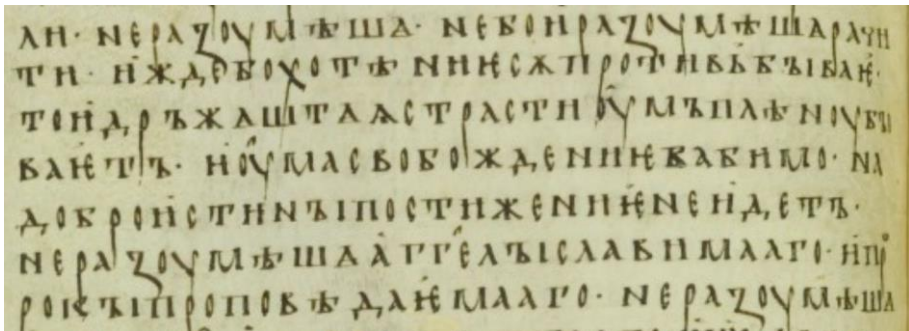 ли· неразоумѣша· небонразоумѣшарачи
ти· иждебохотѣниѥсѧпротивьбꙑваѥ·
тоидръжаштаѩстрастиоумъплѣноубꙑ
ваѥтъ· ноумасвобожденииѥвабимо· на
доброистинꙑпостижениѥнеидетъ·
неразоумѣшааггелꙑславимааго· ипр
рокꙑпроповѣдаѥмааго· неразоумѣша